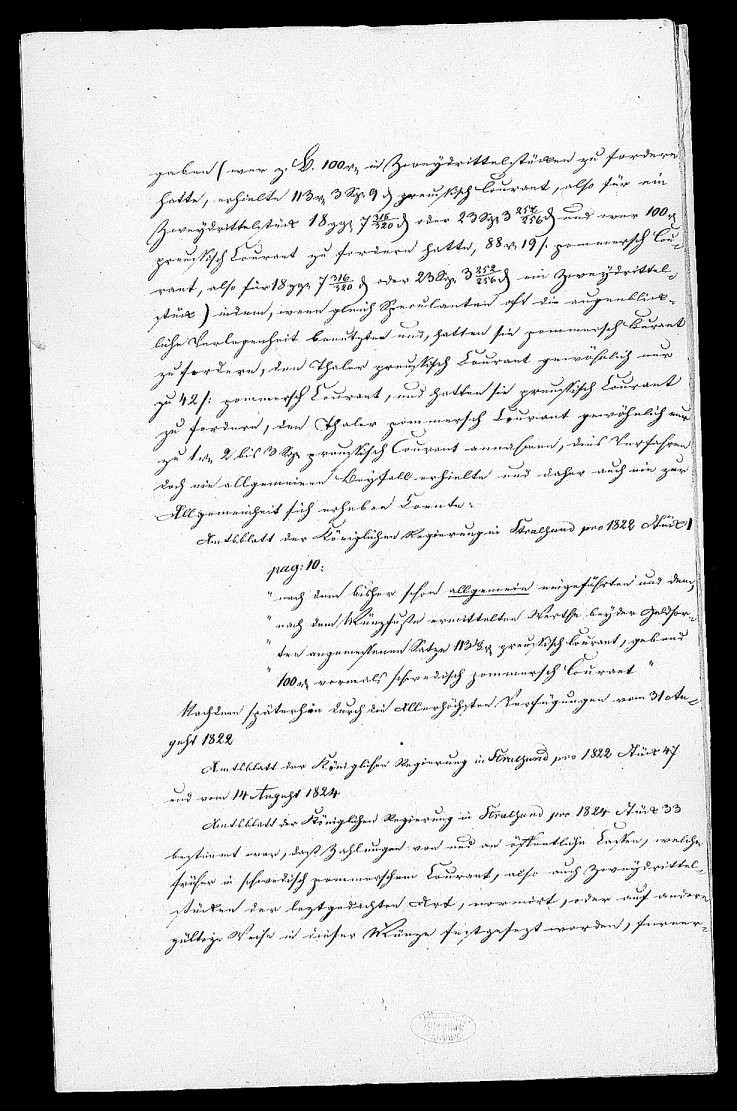 gaben (wer z. B. 100 rℓ in Zweydrittelstücken zu fordern
hatte, erhielte 113 rℓ 3 Sgr 9 ₰ preußisch Courant, also für ein
Zweydrittelstück 18 ggr 7 316/320 ₰ oder 23 Sgr 3 252/256 ₰ und wer 100 rℓ
preußisch Courant zu fordern hatte, 88 rℓ 19 ß. pommersch Cou-
rant, also für 18 ggr 7 316/320 ₰ oder 23 Sgr 3 252/256 ₰ ein Zweydrittel-
stück) indem, wenn gleich Speculanten oft die augenblick-
liche Verlegenheit benutzten und, hatten sie pommersch Curant
zu fordern, den Thaler preußisch Courant gewöhnlich nur
zu 42 ß. pommersch Courant, und hatten sie preußisch Courant
zu fordern, den Thaler pommersch Courant gewöhnlich nur
zu 1 rℓ 2 bis 3 Sgr preußisch Courant annahmen, dies Verfahren
doch nie allgemeinen Beyfall erhielte und daher auch nie zur
Allgemeinheit sich erheben konnte.
Amtsblatt der Königlichen Regierung in Stralsund pro 1822 Stück 1
pag: 10:
" nach dem bisher schon allgemein eingeführten und dem,
" nach dem Münzfuße ermittelten Werthe beyder Geldsor-
" ten angemessenen Satze 113 rℓ preußisch Courant, gebend
" 100 rℓ vormals schwedisch pommersch Courant "
Nachdem späterhin durch die Allerhöchsten Verfügungen vom 31 Au-
gust 1822
Amtsblatt der Königlichen Regierung in Stralsund pro 1822 Stück 47
und vom 14 August 1824
Amtsblatt der Königlichen Regierung in Stralsund pro 1824 Stück 33
bestimmt war, daß Zahlungen von und an öffentliche Cassen, welche
früher in schwedisch pommerschem Courant, also auch Zweydrittel-
stücken der leztgedachten Art, normirt, oder auf andere
gültige Weise in dieser Münze festgesezt worden, ferner-